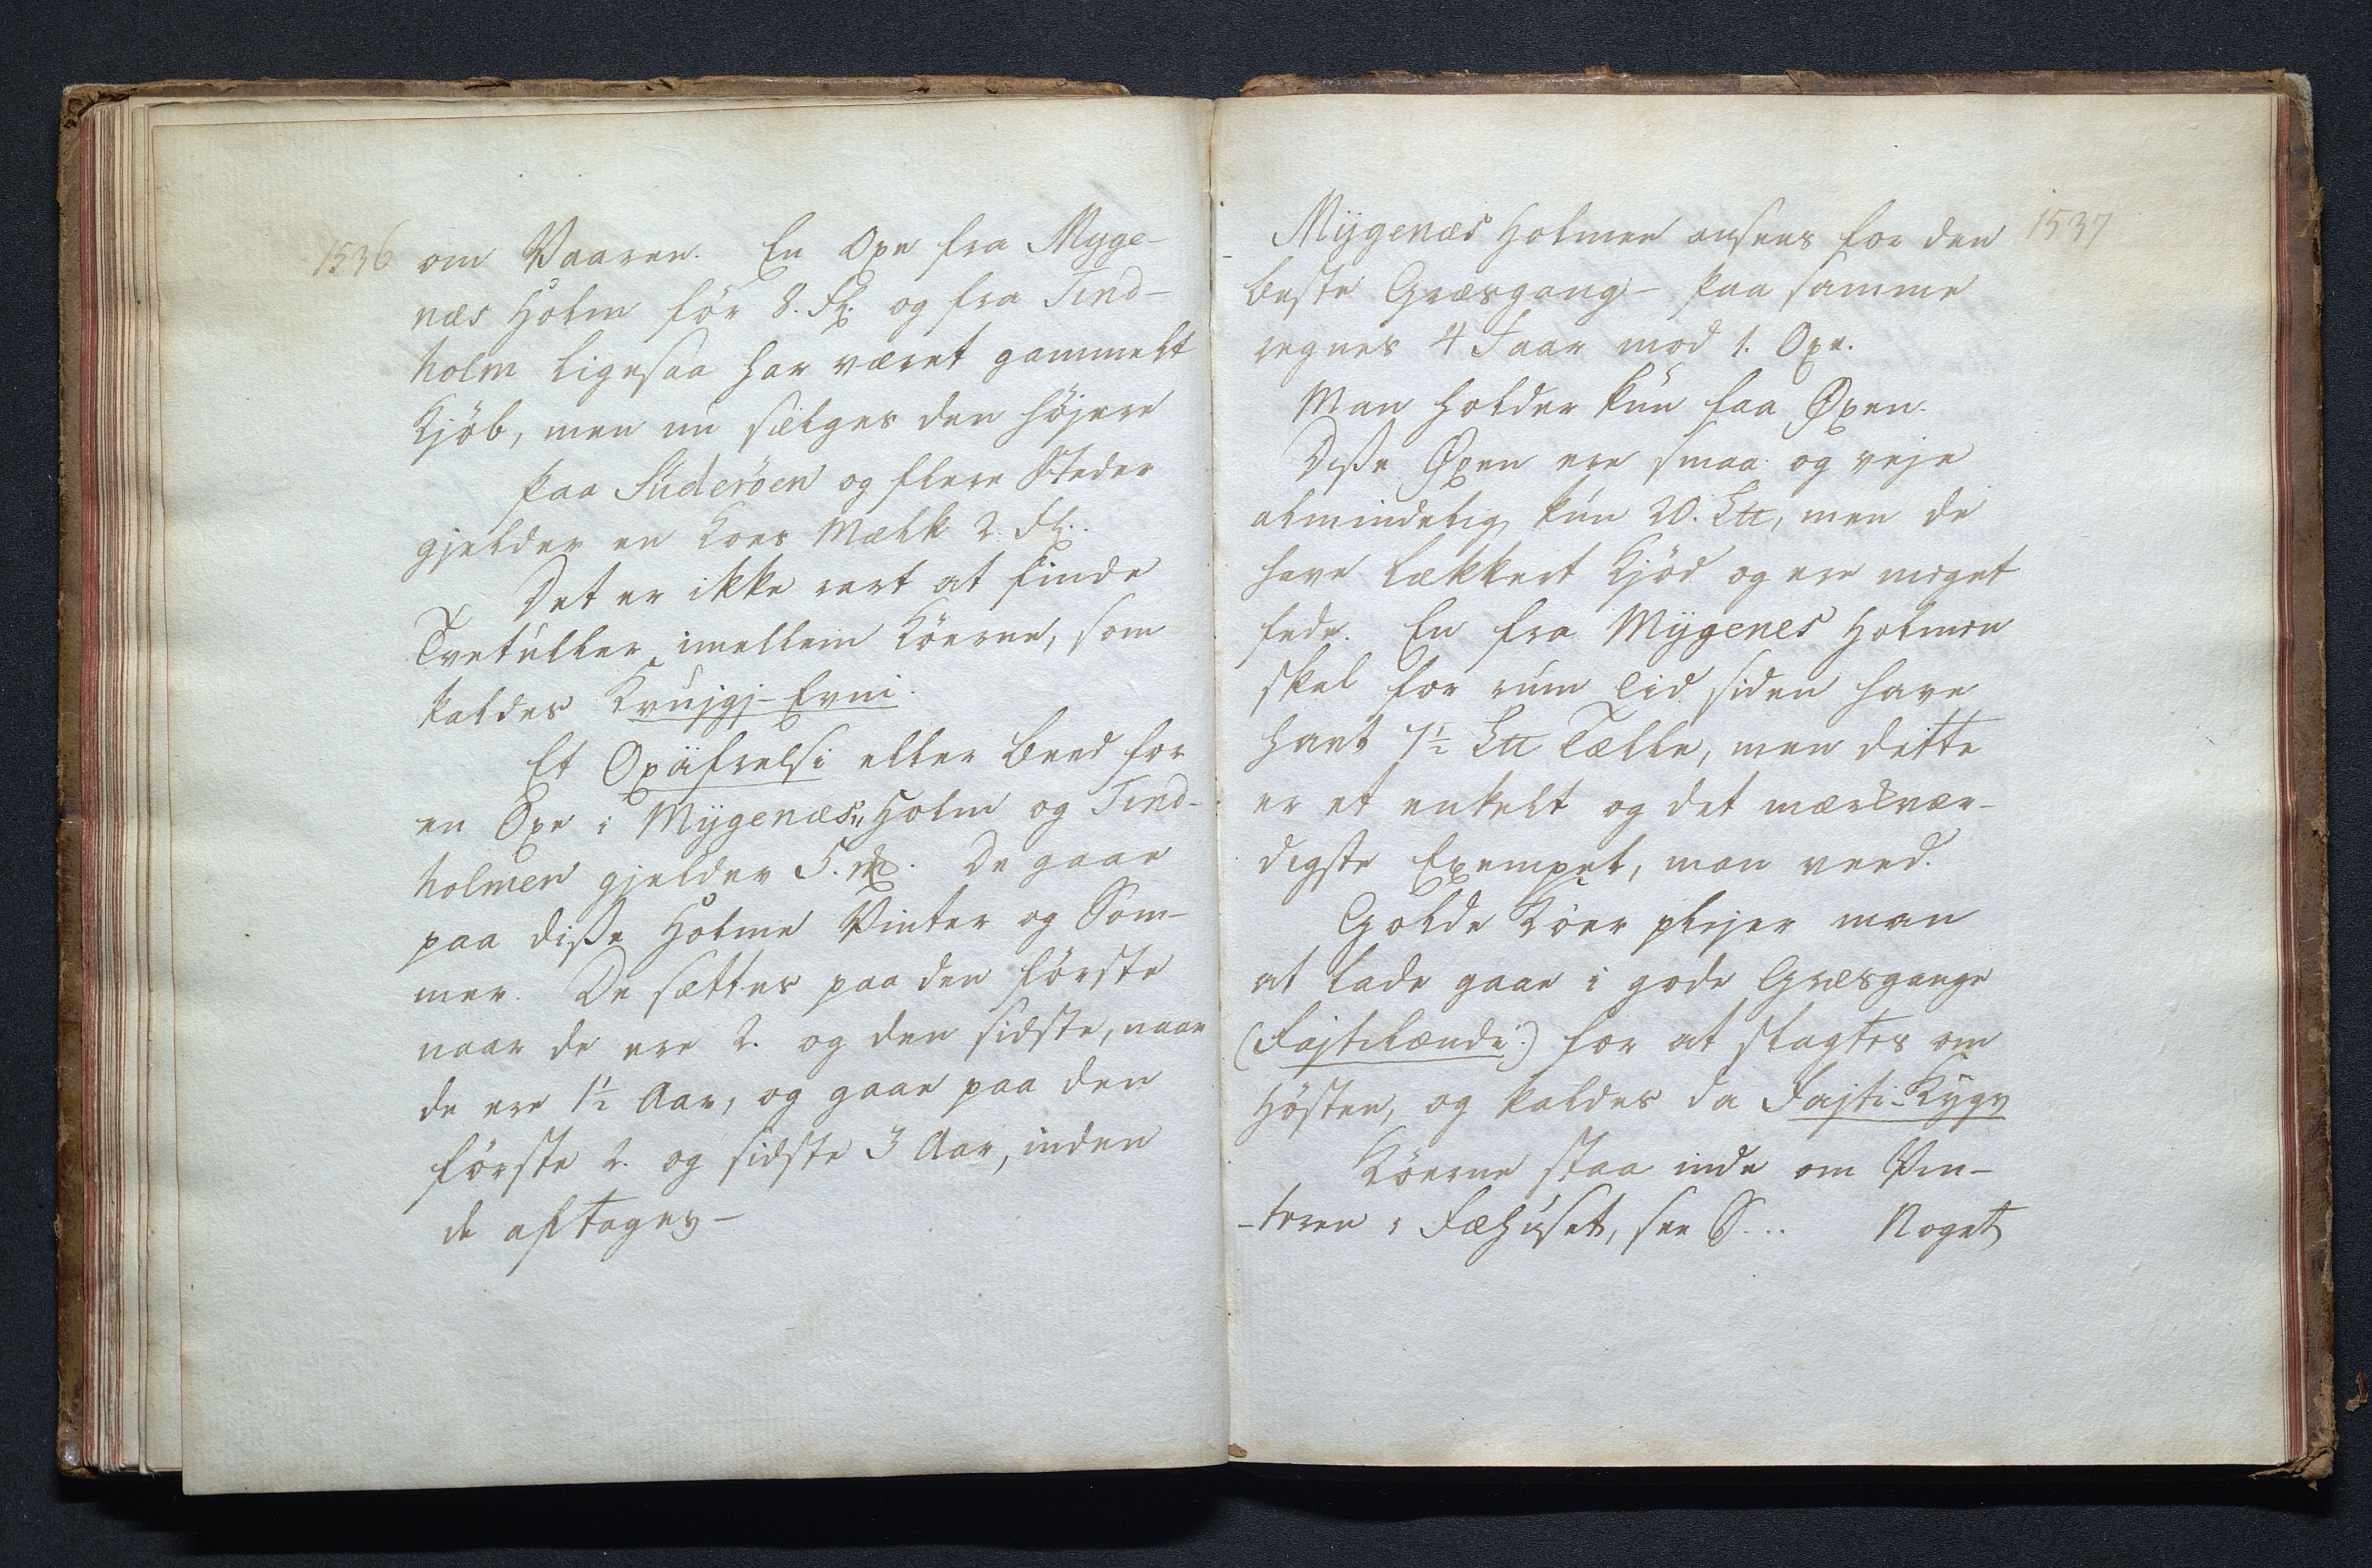 1536
om Vaaren. En Oxe fra Myge-
næs Holm för 8. Fl. og fra Tind-
holm ligesaa har været gammelt
Kjöb, men nu sælges den höjere
Paa Suderöen og flere Steder
gjelder en Koes Mælk 2. Fl.
Det er ikke rart at finde
Tvetuller imellem Köerne, som
kaldes Krujgj-Evni.
Et Oxäfrelsi eller Beed for
en Oxe i Mygenæs Holm og Tind-
holmen gjelder 5. De gaae
paa diße Holme Vinter og Som-
mer. De sættes paa den förste
naar de ere 2. og den sidste, naar
de ere 1½ Aar, og gaae paa den
förste 2. og sidste 3 Aar, inden
de aftages-
1537
Mygenæs Holmen ansees for den
beste Græsgang- Paa samme
regnes 4 Faar mod 1. Oxe.
Man holder kun faa Øxen.
Diße Øxen ere smaa og veje
almindelig kun 20. Ltt, men de
have lækkert Kjöd og ere meget
fede. En fra Mygenes Holmen
skal for rum Tid siden have
havt 7½ Ltt Tælle, men dette
er et enkelt og det mærkvær-
digste Exempel, man veed.
Golde Köer plejer man
at lade gaae i gode Græsgange
(Fajtilændi:) for at slagtes om
Hösten, og kaldes da Fajti-Kygv
Köerne staa inde om Vin-
-teren i Fæhuset, see S... Noget